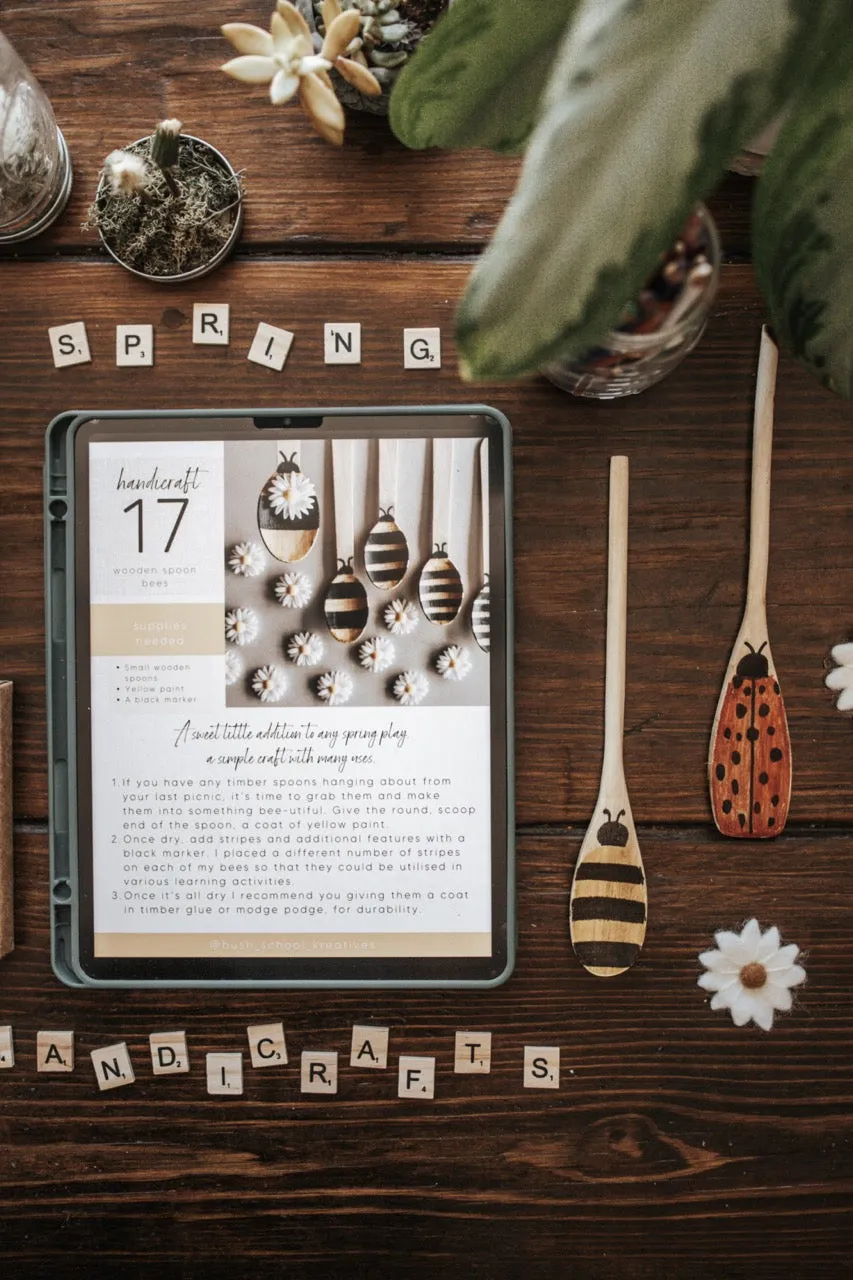 SPRING
handicraft
17
wooden spoon
bees
supplies
needed
• Small wooden
spoons
• Yellow paint
• A black marker
A sweet little addition to any spring play,
a simple craft with many uses.
1. If you have any timber spoons hanging about from
your last picnic, it's time to grab them and make
them into something bee-utiful. Give the round, scoop
end of the spoon, a coat of yellow paint.
2. Once dry, add stripes and additional features with a
black marker. I placed a different number of stripes
on each of my bees so that they could be utilised in
various learning activities.
3. Once it's all dry I recommend you giving them a coat
in timber glue or modge podge, for durability.
@bush_school_kreatives
ANDICRAFTS